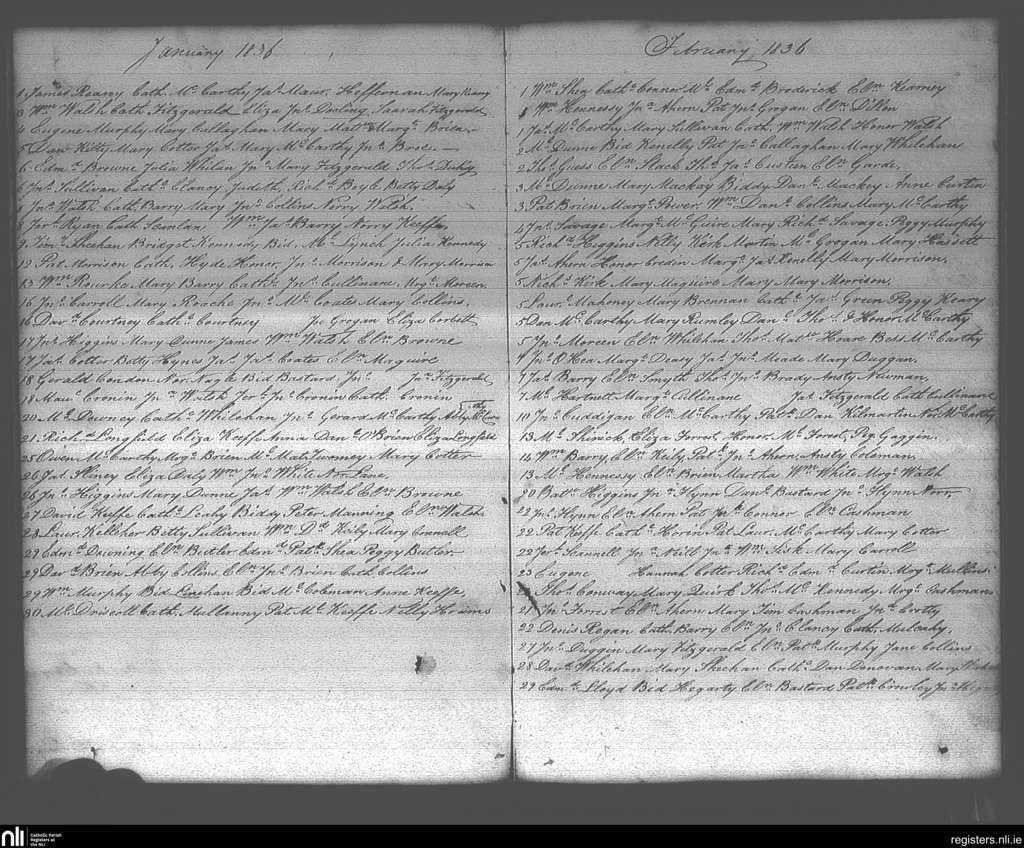 January 1836
1 James Reany Cath. Mc Carthy Jas. Maur. Heffernan Mary Reany
3 Wm Walsh Cath Fitzgerald Eliza Jns. Darling, Sarah Fitzgerald
4 Eugene Murphy Mary Callaghan Mary Matt & Margt. Brien.
5 Dan Kilty Mary Cotter Jas. Mary Mc Carthy Jns. Bree.
6 Edmd. Browne Julia Whelan Jns. Mary Fitzgerald Thos.
6 Jns. Sullivan Cath. Clancy Judith, Richd. Boyle Betty Daly
Jns. Walsh Cath. Barry Mary Jns. Collins Norry Welsh
8 Jerh. Ryan Cath Scanlan Wm Jas. Barry Norry Keeffe
9 Timy. Sheehan Bridget Kennedy Bid. Ml. Lynch Julia Kennedy
12 Pat. Morrison Cath. Hyde Honor, Jns. Morrison & Mary Morrison
13 Wm. Rourke Mary Barry Cath. Jns. Cullinane Mrgt. Moreen.
16 Jns. Carroll Mary Roache Jns. Ml. Coates Mary Collins.
16 Davd. Courtney Cath. Courtney Jns Grogan Eliza Corbett
17 Jns. Higgins Mary Dunne James Wm Walsh Elln Browne
17 Jas. Cotter Betty Hynes Jns. Jas. Coates Elln. Maguire
18 Gerald Condon Nor. Nagle Bid Bastard Jns. Jas. Fitzgerald
18 Maue. Cronin Jns. Walsh Jerh. Jns. Cronin Cath. Cronin
20 Ml. Downey Cath. Whilehan Jns. Gerard Mc Carthy
21 Richd. Longfield Eliza Keeffe Anna Danl. O'Brien Eliza Longfield
25 Owen Mc Carthy Mrgt. Brien Ml. Matt Twomey Mary Cotter
26 Jas. Sliney Eliza Daly Wm Jns. White Nor Lane,
26 Jns. Higgins Mary Dunne Jas. Wm Walsh Elln Browne
27 David Keiffe Cath. Leehy Biddy Peter Manning Elln Walsh
28 Laur. Kelleher Betty Sullivan Wm Dd. Keily Mary Connell
29 Edmd. Downing Elln Butler Edmd. Patk. Shea Peggy Butler
29 Davd. Brien Abby Collins Elln Jns. Brien Cath. Collins
29 Wm Murphy Bid Linehan Bid Ml. Colman Anne Keeffe,
30 Ml. Driscoll Cath. Mullanny Pat Ml. Keeffe Nelly
February 1836
1 Wm. Shea Cath. Connor Ml. Edmd. Broderick Elln Kearney
1 Wm. Hennessy Jns. Ahern Pat Jns. Grogan Elln Dillon
1 Jas. Mc Carthy Mary Sullivan Cath. Wm Walsh Honor Walsh
2 Ml. Dunne Bid Kenelly Pat Jns. Callaghan Mary Whilehan
2 Thos. Guess Elln Slack Thos. Jas. Custen Elln Garde.
3 Ml. Dunne Mary Mackay Biddy Danl. Mackey Anne Curtin
3 Pat Brien Margt. Power. Wm Danl. Collins Mary Mc Carthy
4 Jns. Savage Margt. Mc Guire Mary Richd. Savage Peggy Murphy
5 Richd. Higgins Nelly Kirk Martin Ml. Grogan Mary Hassett
5 Jas. Ahern Honor Creden Margt. Jas. Kenelly Mary Morrison,
5 Richd. Kirk Mary Maguire Mary Mary Morrison.
5 Laur. Mahoney Mary Brennan Cath. Jas. Green Peggy Keary
5 Dan Mc Carthy Mary Rumley Danl. Thos. & Honor Mc Carthy
5 Jns. Moreen Elln Whilehan Thos. Matt. Hoare Bess Mc Carthy
7 Jns. O Hea Margt. Deasy Jas. Jns. Meade Mary Duggan.
7 Jas. Barry Elln Smyth Thos. Jns. Brady Ansty Newman.
7 Ml. Hartnett Margt. Allinane Jas. Fitzgerald Cath Cullinane
10 Jns. Cuddigan Elln Mc Carthy Patk. Dan Kilmartin Nor. Mc Carthy
13 Ml. Shinick, Eliza Forrest, Honor. Ml. Forrest, Peg Guggin.
14 Wm Barry, Elln Keily, Pat Jns. Ahern, Ansty Coleman,
13 Ml. Hennessy Elln Brien Martha Wm White Mrgt Walsh
20 Batt. Higgins Jns. Flynn Danl. Bastard Jns. Flynn Norr,
22 Jns. Flynn Elln Ahern Pat Jns. Connor Elln Cashman
22 Pat Keiffe Cath. Horin Pat Laur. Mc Carthy Mary Cotter
22 Jerh. Scannell Jns. Neill Jns. Wm Sisk Mary Carroll
23 Eugene Hannah Cotter Richd. Edmd. Curtin Mrgt. Mullins
Thos. Conway Mary Quirk Thos. Ml. Kennedy Mrgt. Cashman
21 Jns. Forrest Elln Ahern Mary Tim Cashman Jns. Crotty
22 Denis Regan Cath. Barry Elln Jns. Clancy Cath. Mulcahy,
27 Jns. Duggan Mary Fitzgerald Elln Patk. Murphy Jane Collins
28 Davd. Whilehan Mary Sheehan Cath. Dan Donovan Mary
29 Edmd. Lloyd Bid Hegarty Elln Bastard Patk. Crowley Jns.
nli
Catholic Parish
Registers at
the NLI
registers.nli.ie